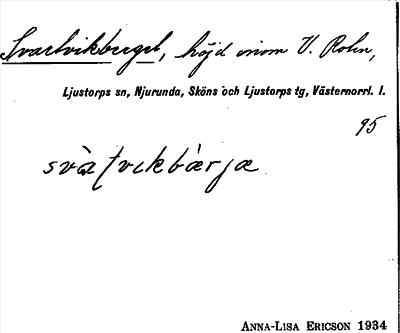 Svartvikberget, höjd inom V. Rolen,
Ljustorps sn, Njurunda, Sköns och Ljustorps tg, Västernorrl. l.
95
ANNA-LISA ERICSON 1934